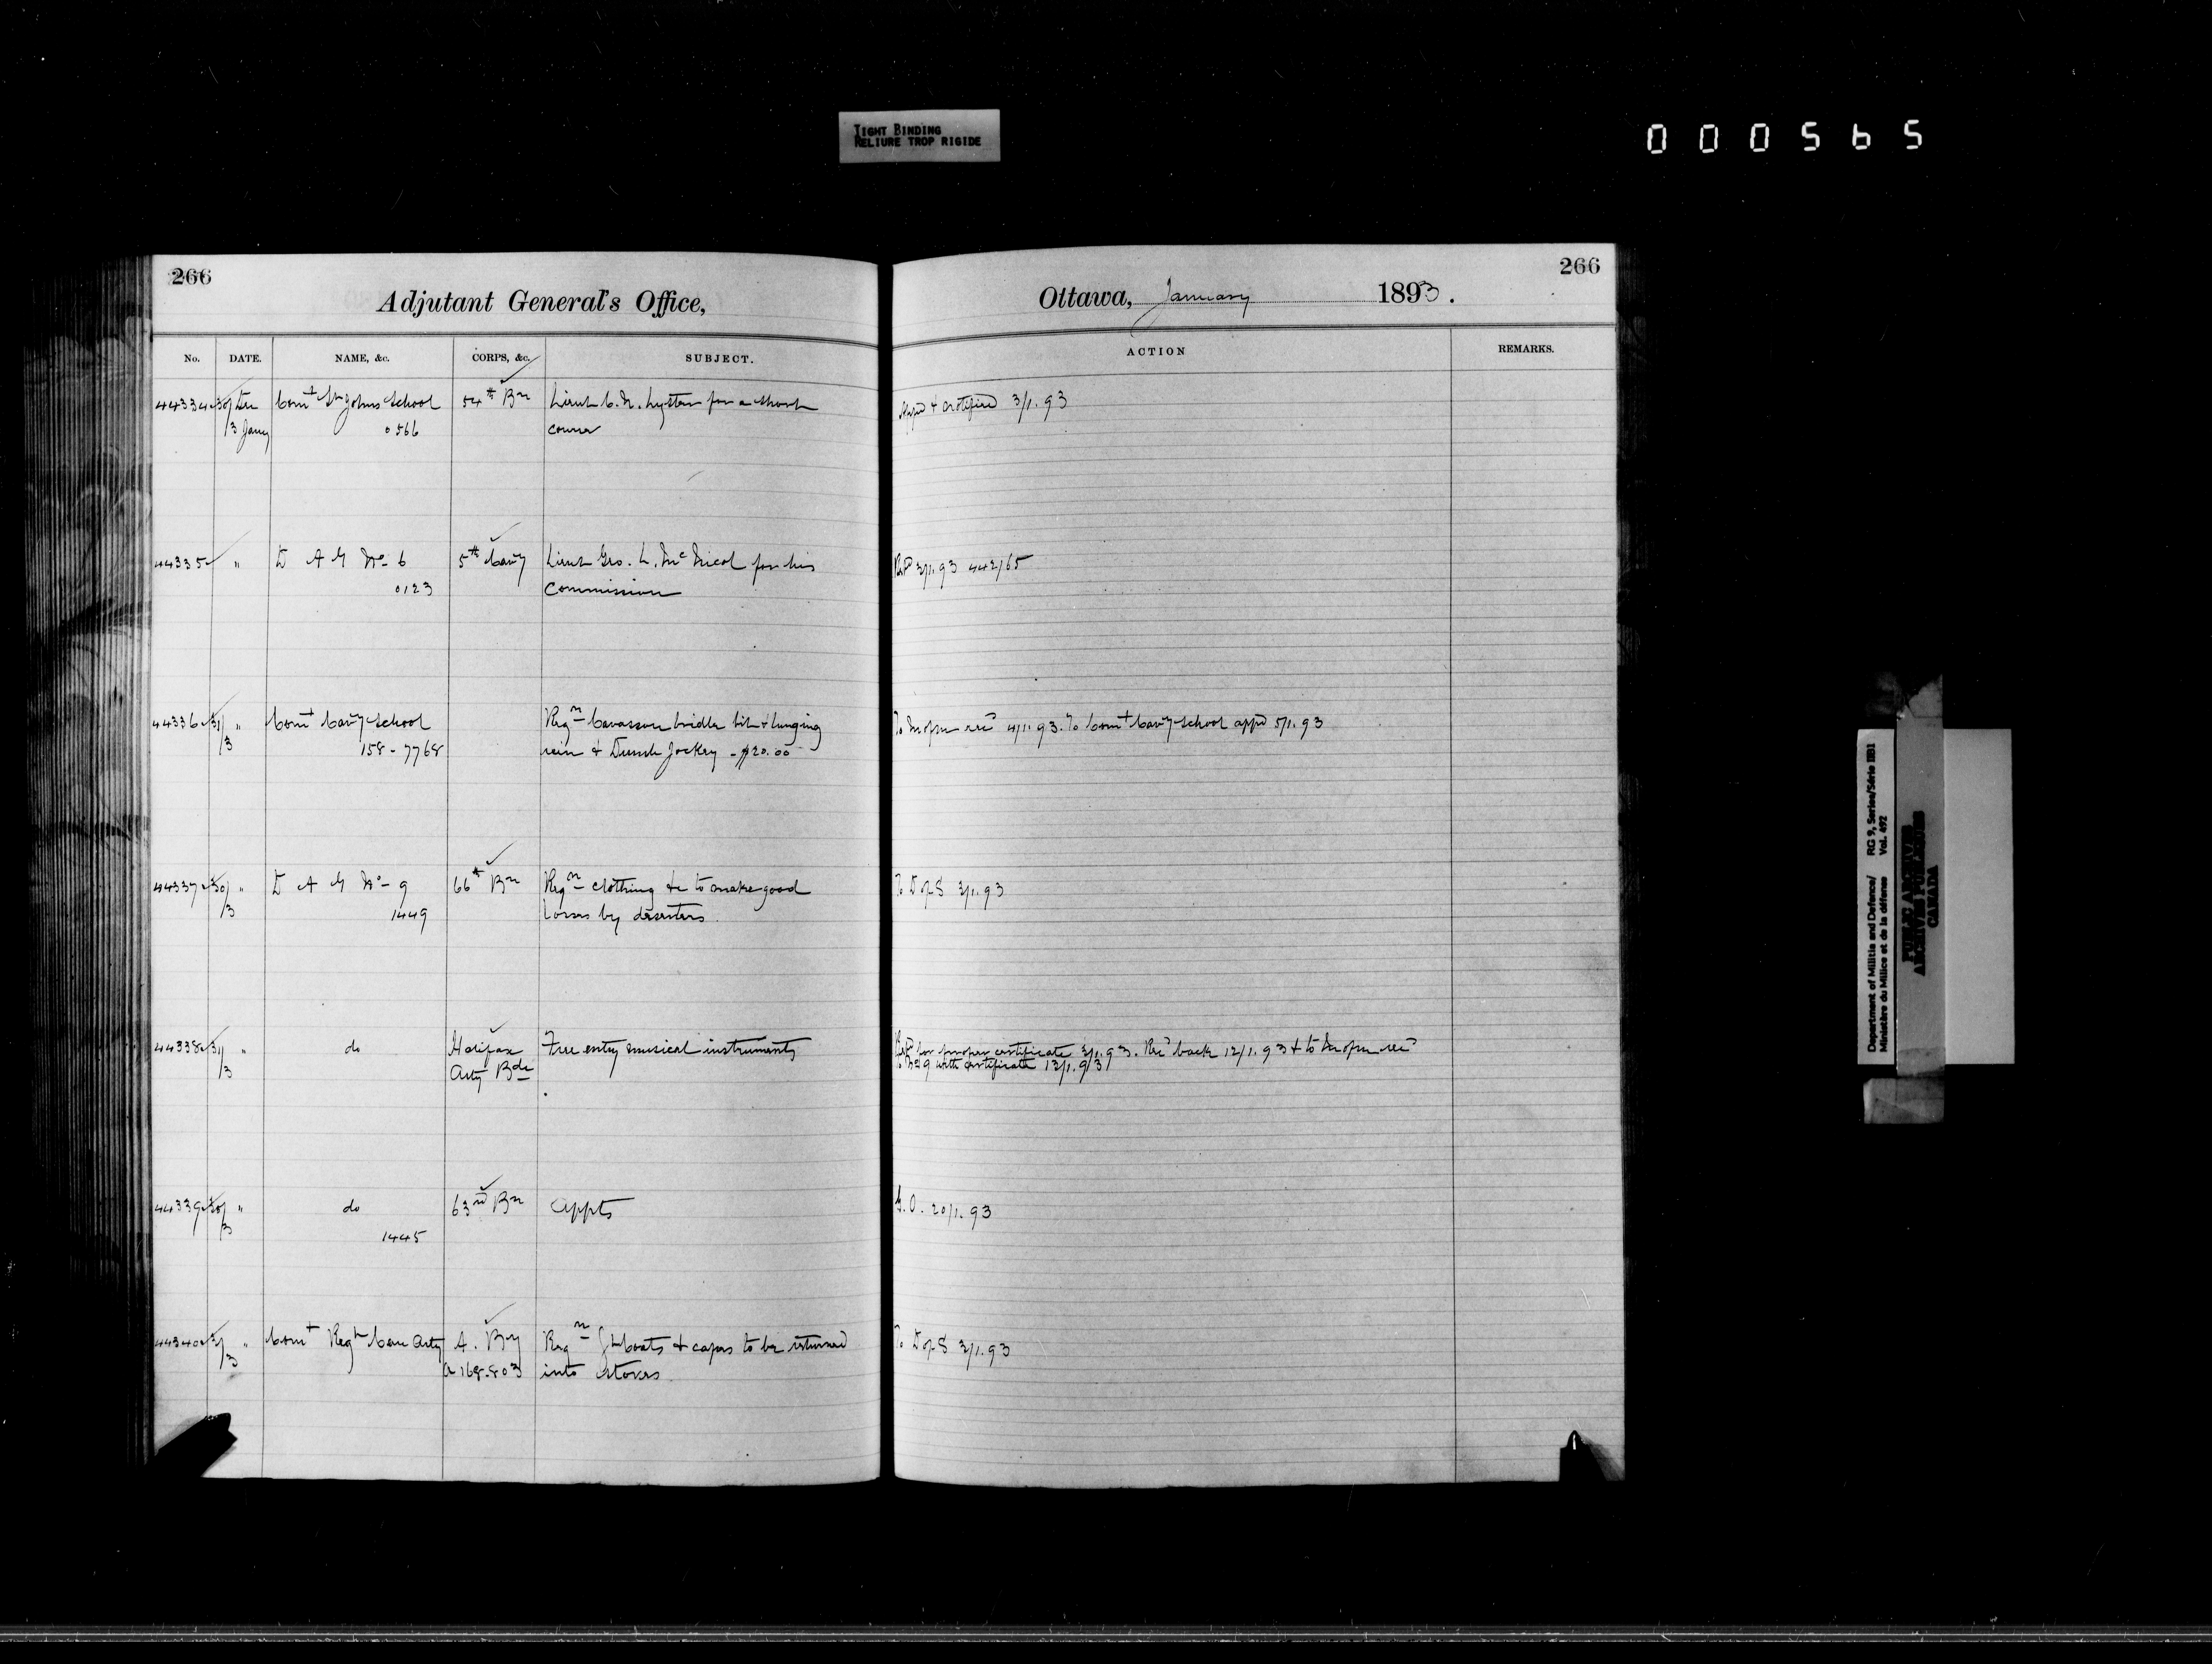 TIGHT BINDING
RELIURE TROP RIGIDE
000565
266
Adjutant General's Office,
No. DATE. NAME, &c. CORPS, &c. SUBJECT.
44334 30/ Dec Comt St Johns School 54th Bn Lieut C. N. Lyster for a short
/3 Jany 0566 course
44335 " D A G No- 6 5th Cavy Lieut Geo. L. McNicol for his
0123 Commission
44336 31/ " Comt Cavy School Reqn Cavasson bridle bit & lunging
/3 158-7768 rein & Dumb Jockey - $20.00
44337 30/ " D A G No- 9 66th Bn Reqn clothing &c to make good
/3 1449 losses by deserters
44338 31/ " do Halifax Free entry musical instruments
/3 Arty Bde
44339 30/ " do 63rd Bn Appts
/3 1445
44340 " Comt Regt Can Arty A. By Reqn Gt coats & capes to be returned
/3 a 168.803 into Stores
266
Ottawa, January 1893.
ACTION REMARKS.
Appd & certified 3/1.93
3/1.93 44265
To M of M recd 4/1.93. To Comt Cavy School appd 5/1.93
To D of S 3/1.93
for proper certificate 3/1.93. Recd back 12/1.93 & to M of M recd
9 with certificate 13/1.93
G.O. 20/1.93
To D of S 3/1.93
Department of Militia and Defence/ RG 9, Series/Série IIB1
Ministère du Milice et de la défense Vol. 492
PUBLIC ARCHIVES
ARCHIVES PUBLIQUES
CANADA